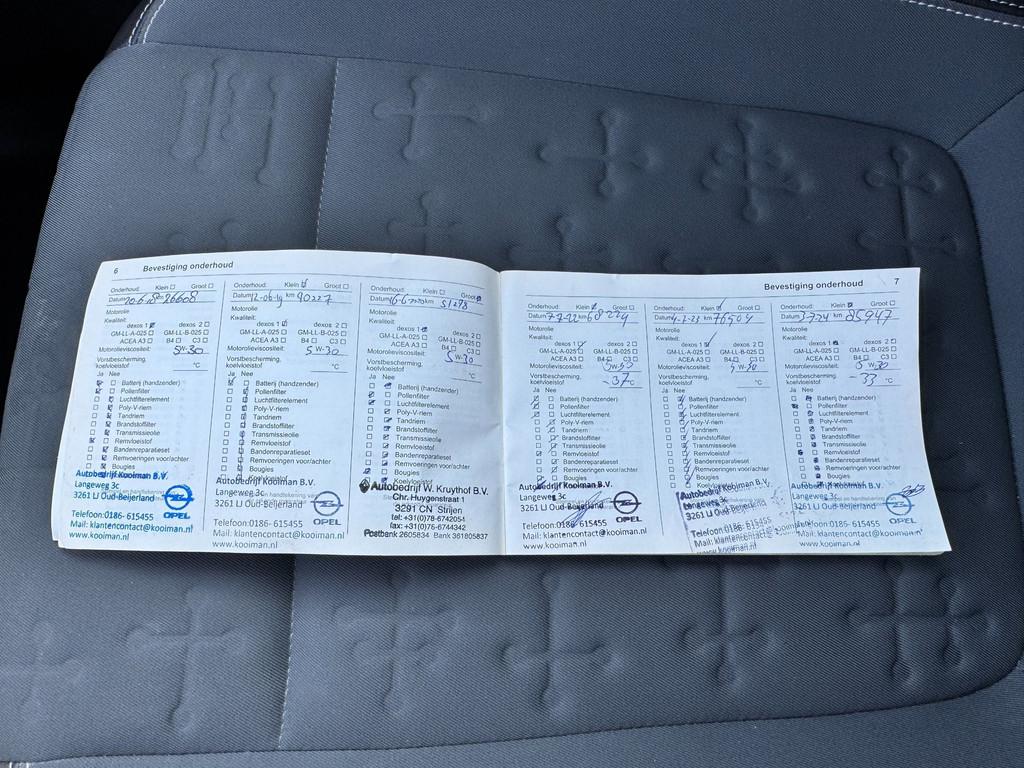 6 Bevestiging onderhoud
Onderhoud: Klein Groot
Datum 20-6-18 km 26608
Motorolie
Kwaliteit:
dexos 1 dexos 2
GM-LL-A-025 GM-LL-B-025
ACEA A3 B4 C3
Motorolieviscositeit: 5W-30
Vorstbescherming, koelvloeistof °C
Ja Nee
Batterij (handzender)
Pollenfilter
Luchtfilterelement
Poly-V-riem
Tandriem
Brandstoffilter
Transmissieolie
Remvloeistof
Bandenreparatieset
Remvoeringen voor/achter
Bougies
Autobedrijf Kooiman B.V.
Langeweg 3c
3261 LJ Oud-Beijerland
OPEL
Telefoon:0186- 615455
Mail: klantencontact@kooiman.nl
www.kooiman.nl
Onderhoud: Klein Groot
Datum 12-06-19 km 90227
Motorolie
Kwaliteit:
dexos 1 dexos 2
GM-LL-A-025 GM-LL-B-025
ACEA A3 B4 C3
Motorolieviscositeit: 5W-30
Vorstbescherming, koelvloeistof °C
Ja Nee
Batterij (handzender)
Pollenfilter
Luchtfilterelement
Poly-V-riem
Tandriem
Brandstoffilter
Transmissieolie
Remvloeistof
Bandenreparatieset
Remvoeringen voor/achter
Bougies
Koelvloeistof
Autobedrijf Kooiman B.V.
Langeweg 3c
3261 LJ Oud-Beijerland
OPEL
Telefoon:0186- 615455
Mail: klantencontact@kooiman.nl
www.kooiman.nl
Onderhoud: Klein Groot
Datum 16-6-2020 km 51278
Motorolie
Kwaliteit:
dexos 1 dexos 2
GM-LL-A-025 GM-LL-B-025
ACEA A3 B4 C3
Motorolieviscositeit: 5W-30
Vorstbescherming, koelvloeistof °C
Ja Nee
Batterij (handzender)
Pollenfilter
Luchtfilterelement
Poly-V-riem
Tandriem
Brandstoffilter
Transmissieolie
Remvloeistof
Bandenreparatieset
Remvoeringen voor/achter
Bougies
Koelvloeistof
Autobedrijf W. Kruythof B.V.
Chr. Huygenstraat 1
3291 CN Strijen
tel: +31(0)78-6742054
fax: +31(0)78-6744342
Postbank 2605834 Bank 361805837
Bevestiging onderhoud 7
Onderhoud: Klein Groot
Datum 7-7-22 km 68224
Motorolie
Kwaliteit:
dexos 1 dexos 2
GM-LL-A-025 GM-LL-B-025
ACEA A3 B4 C3
Motorolieviscositeit: 5W-30
Vorstbescherming, koelvloeistof -37 °C
Ja Nee
Batterij (handzender)
Pollenfilter
Luchtfilterelement
Poly-V-riem
Tandriem
Brandstoffilter
Transmissieolie
Remvloeistof
Bandenreparatieset
Remvoeringen voor/achter
Bougies
Autobedrijf Kooiman B.V.
Langeweg 3c
3261 LJ Oud-Beijerland
OPEL
Telefoon:0186- 615455
Mail: klantencontact@kooiman.nl
www.kooiman.nl
Onderhoud: Klein Groot
Datum 4-7-23 km 76504
Motorolie
Kwaliteit:
dexos 1 dexos 2
GM-LL-A-025 GM-LL-B-025
ACEA A3 B4 C3
Motorolieviscositeit: 5W-30
Vorstbescherming, koelvloeistof °C
Ja Nee
Batterij (handzender)
Pollenfilter
Luchtfilterelement
Poly-V-riem
Tandriem
Brandstoffilter
Transmissieolie
Remvloeistof
Bandenreparatieset
Remvoeringen voor/achter
Bougies
Autobedrijf Kooiman B.V.
Langeweg 3c
3261 LJ Oud-Beijerland
Telefoon:0186- 615455
Mail: klantencontact@kooiman.nl
www.kooiman.nl
Onderhoud: Klein Groot
Datum 3-7-24 km 85947
Motorolie
Kwaliteit:
dexos 1 dexos 2
GM-LL-A-025 GM-LL-B-025
ACEA A3 B4 C3
Motorolieviscositeit: 5W-30
Vorstbescherming, koelvloeistof -33 °C
Ja Nee
Batterij (handzender)
Pollenfilter
Luchtfilterelement
Poly-V-riem
Tandriem
Brandstoffilter
Transmissieolie
Remvloeistof
Bandenreparatieset
Remvoeringen voor/achter
Bougies
Autobedrijf Kooiman B.V.
Langeweg 3c
3261 LJ Oud-Beijerland
OPEL
Telefoon:0186- 615455
Mail: klantencontact@kooiman.nl
www.kooiman.nl